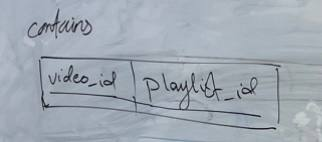 contains
video_id playlist_id